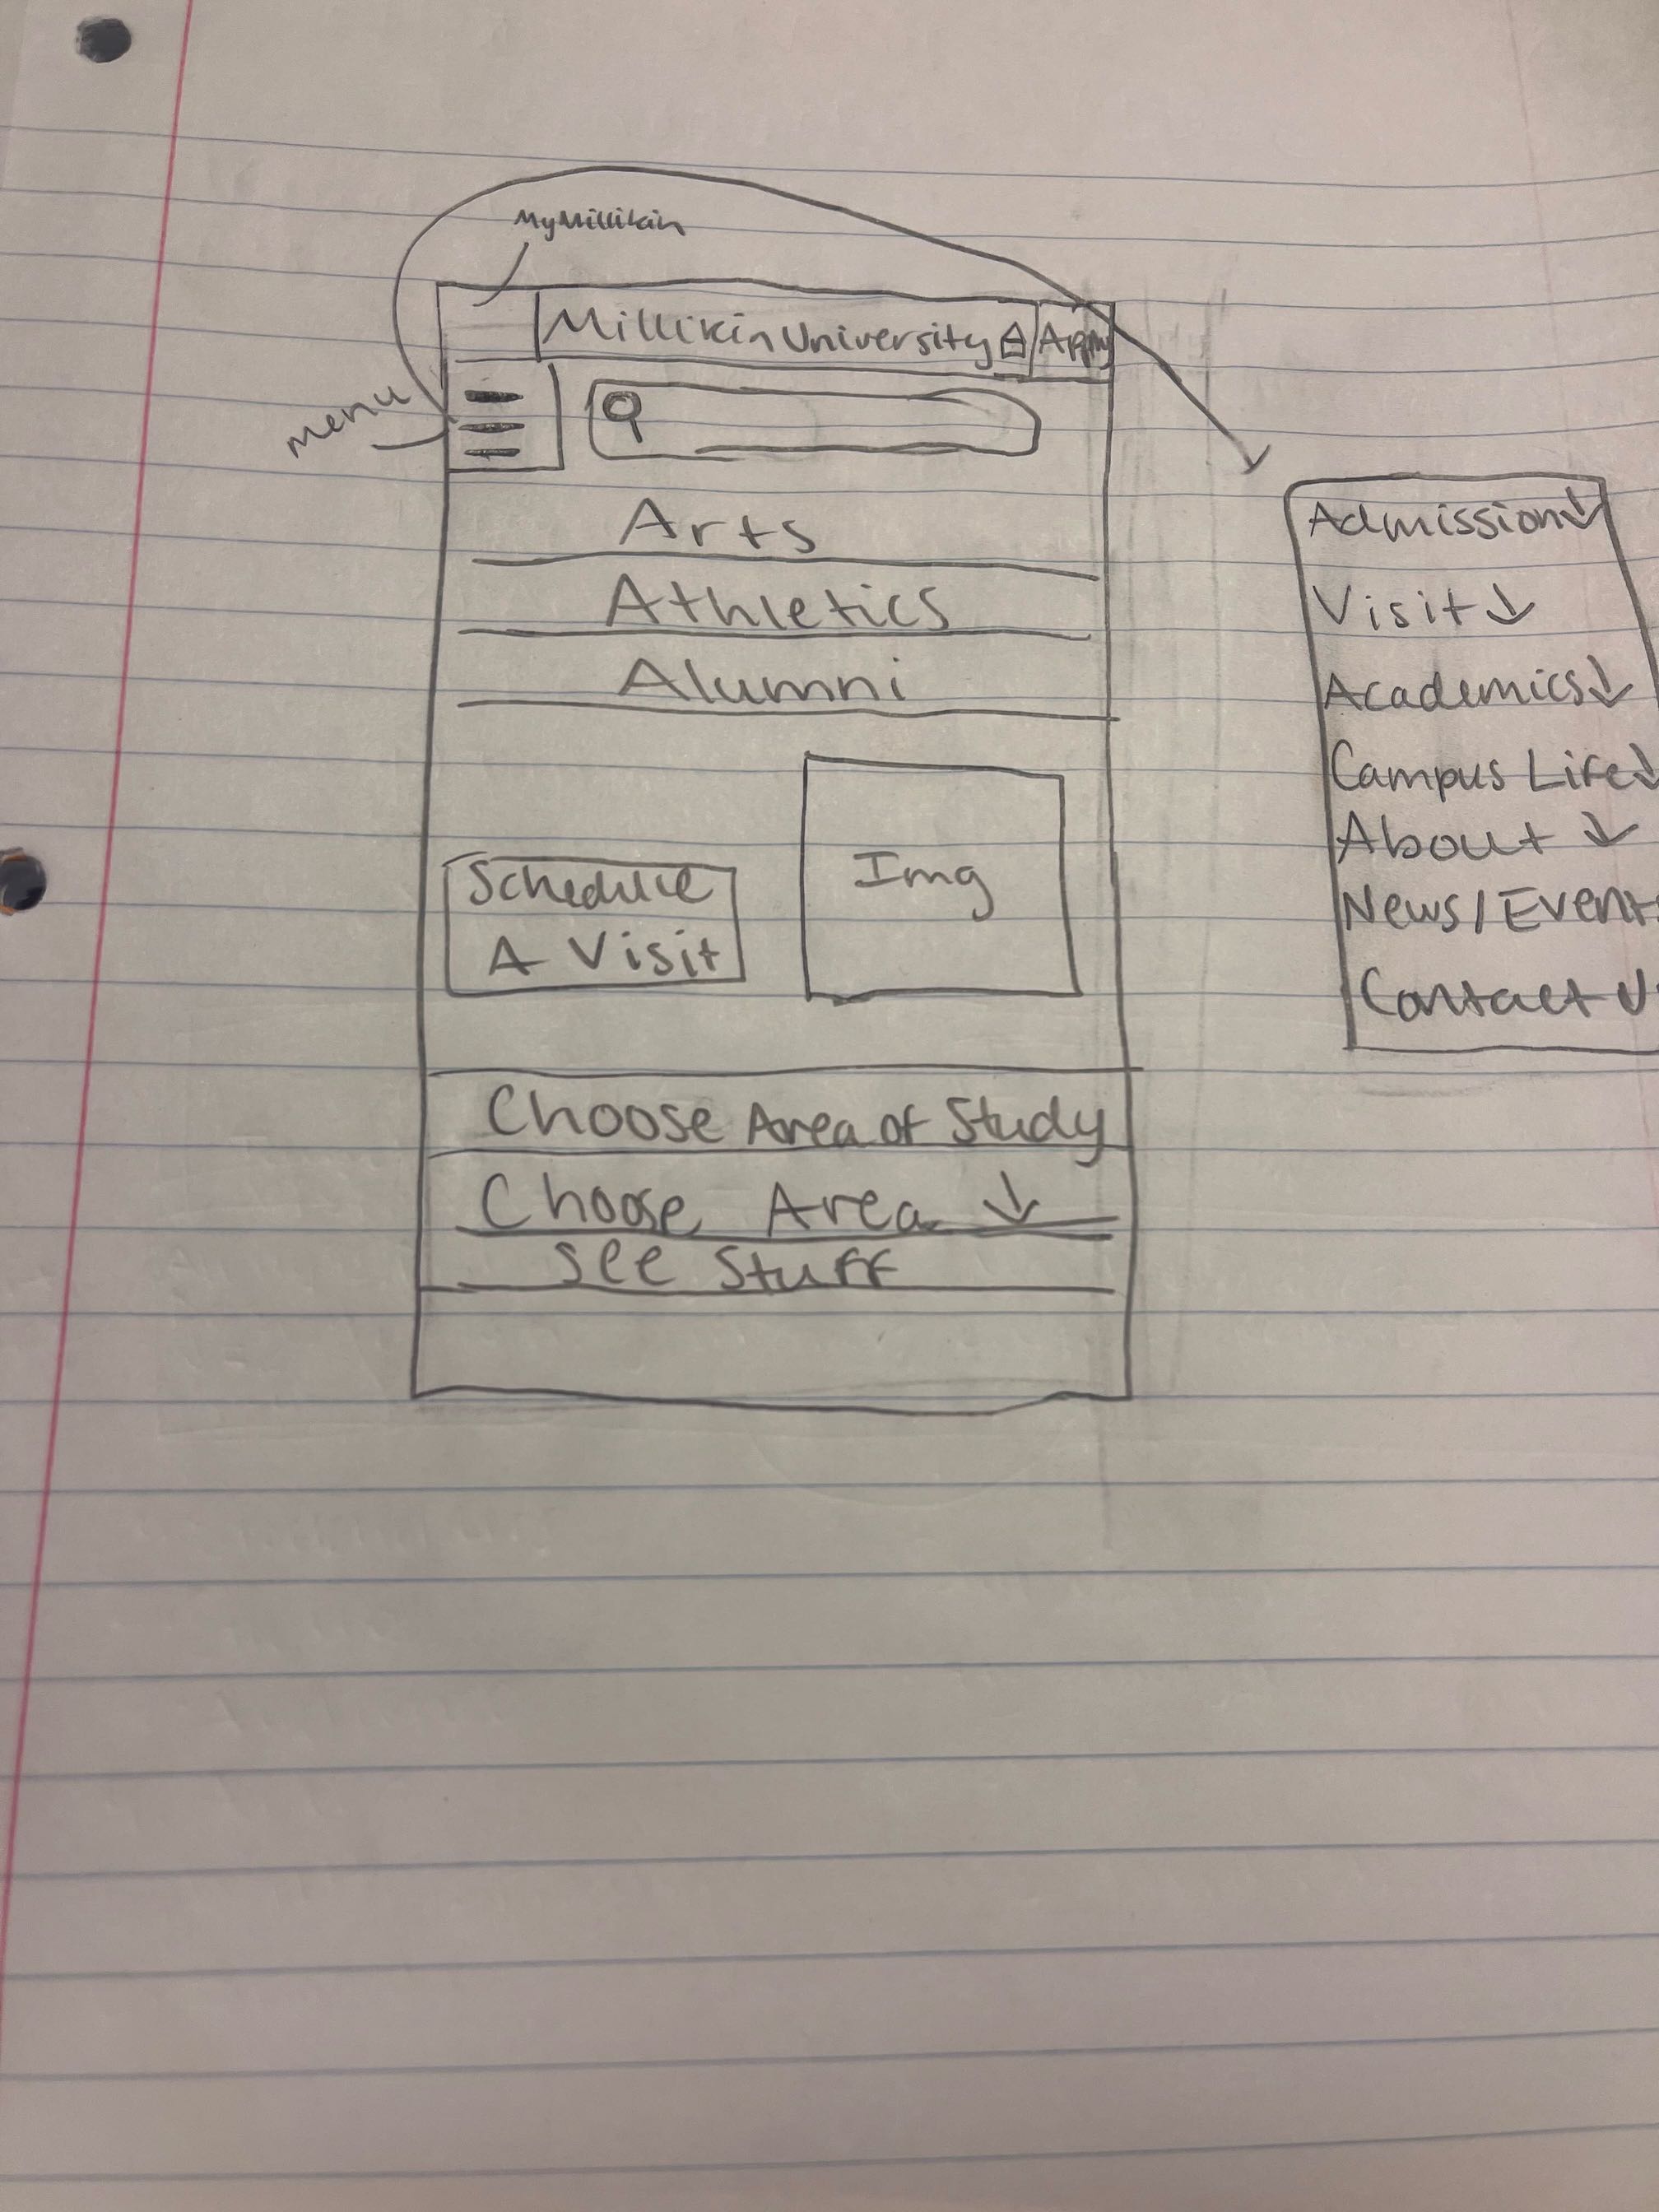 MyMillikin
Millikin University Apply
menu
Arts
Athletics
Alumni
Schedule
A Visit
Img
Choose Area of Study
Choose Area ↓
See Stuff
Admission ↓
Visit ↓
Academics ↓
Campus Life ↓
About ↓
News/Events
Contact U